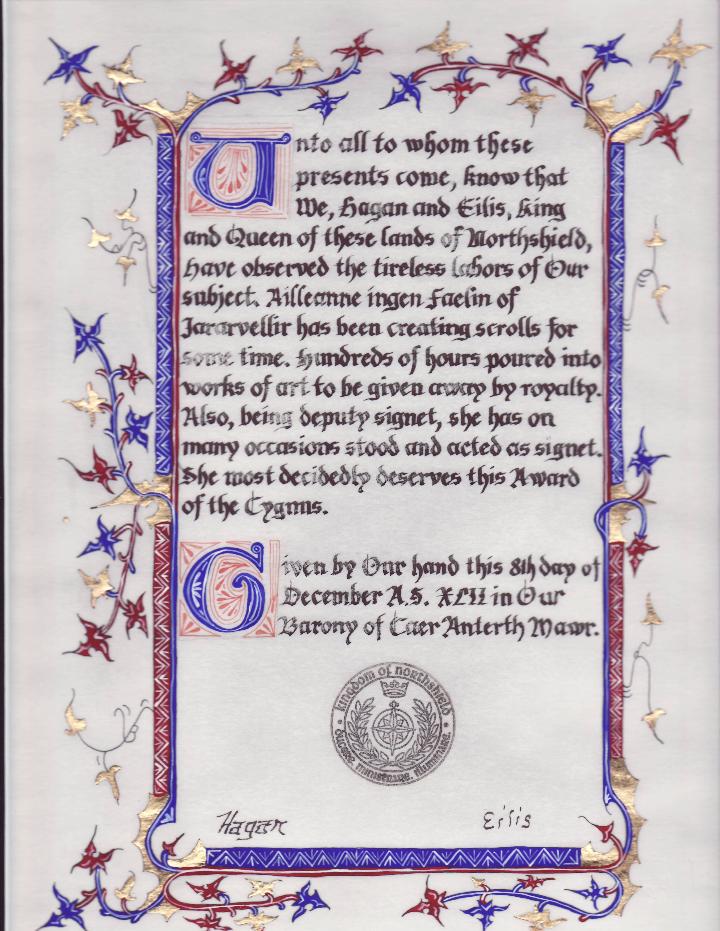 Unto all to whom these
presents come, know that
We, Hagan and Eilis, King
and Queen of these lands of Northshield,
Have observed the tireless labors of Our
subject. Ailleanne ingen Faelin of
Jararvellir has been creating scrolls for
some time. Hundreds of hours poured into
works of art to be given away by royalty.
Also, being deputy signet, she has on
many occasions stood and acted as signet.
She most decidedly deserves this Award
of the Cygnus.
Given by Our hand this 8th day of
December A.S. XLII in Our
Barony of Caer Anterth Mawr.
kingdom of northshield
ministrare. illuminare.
Hagan
Eilis